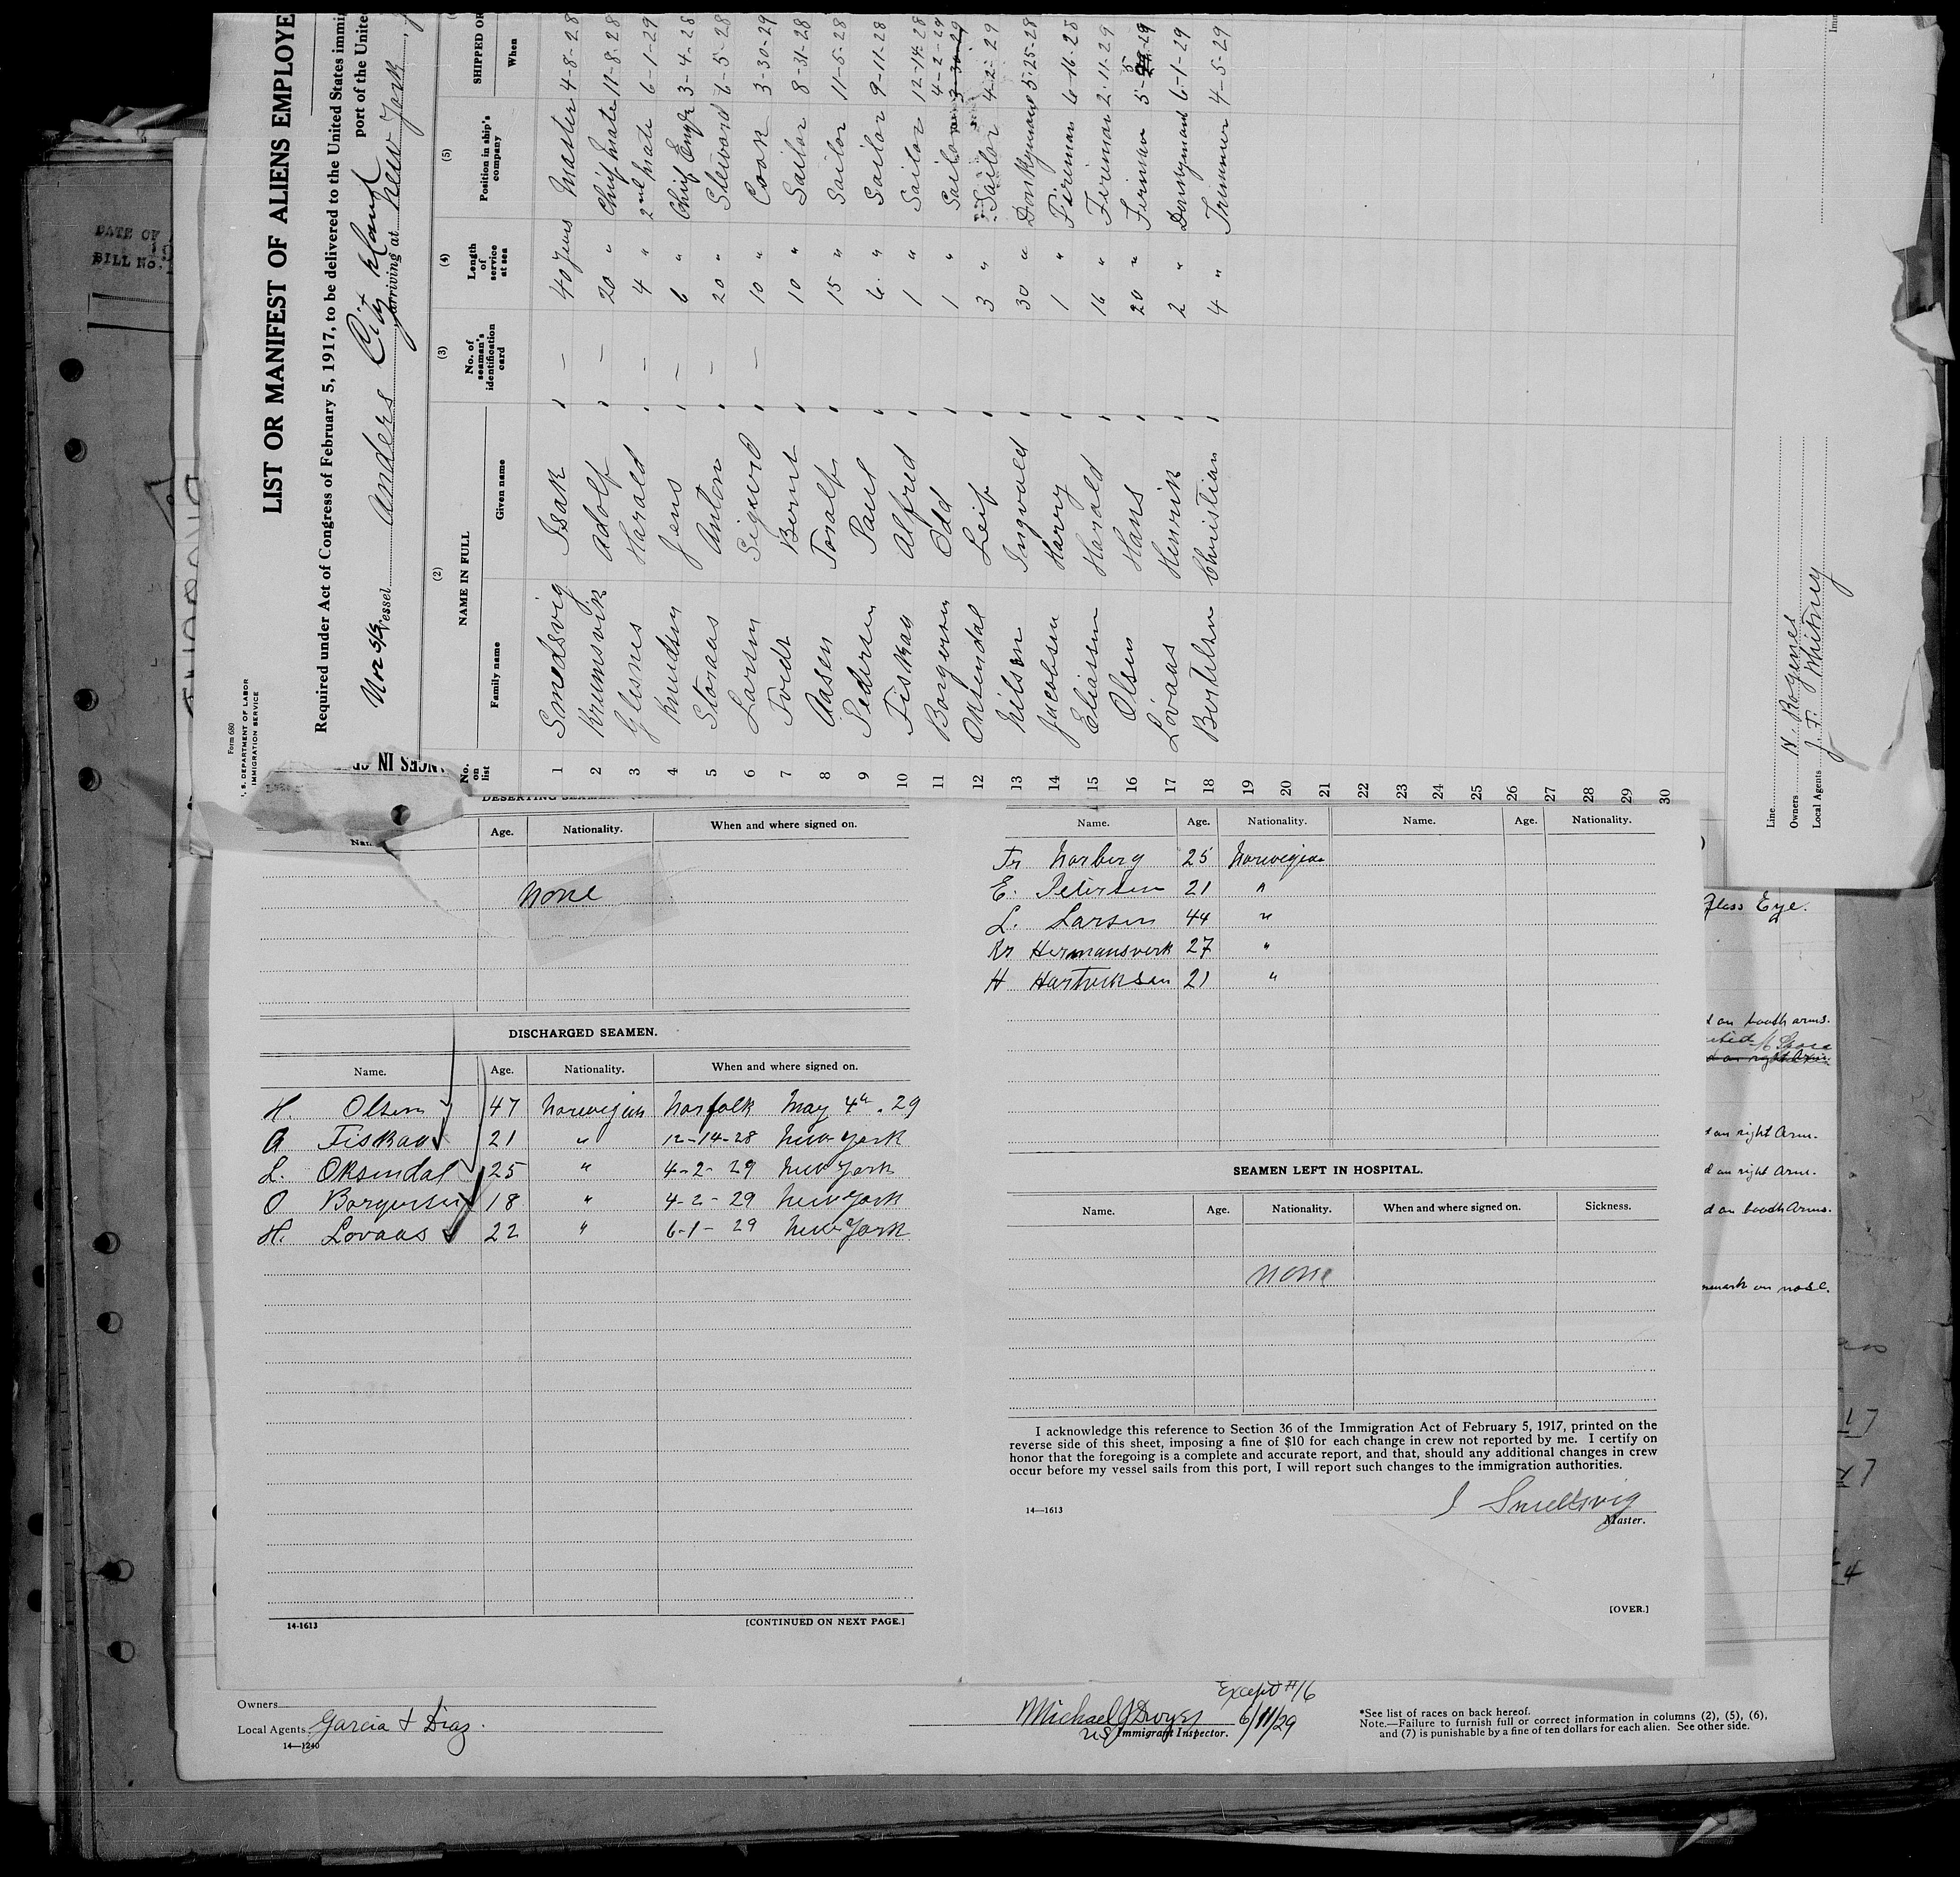 Form 680
U. S. DEPARTMENT OF LABOR
IMMIGRATION SERVICE
LIST OR MANIFEST OF ALIENS EMPLOYE
Required under Act of Congress of February 5, 1917, to be delivered to the United States immi
port of the Unite
Nor S/S Vessel Anders
arriving at New York
(2) (3) (4) (5)
No. on list NAME IN FULL No. of seaman's identification card Length of service at sea Position in ship's company SHIPPED OR
Family name Given name When
1 Smedsvig Isak — 40 years Master 4-8-28
2 Krumsvik Adolf — 20 " Chief Mate 11-8-28
3 Glesnes Harald — 4 " 2nd Mate 6-1-29
4 Knudsen Jens — 6 " Chief Engr 3-4-28
5 Storaas Anton — 20 " Steward 6-5-28
6 Larsen Sigurd — 10 " Cook 3-30-29
7 Tvedt Bernt 10 " Sailor 8-31-28
8 Aasen Toralf 15 " Sailor 11-5-28
9 Pedersen Paul 6 " Sailor 9-11-28
10 Fiskaa Alfred 1 " Sailor 12-14-28
11 Borgersen Odd 1 " Sailor 4-2-29 3-30-29
12 Oksendal Leif 3 " Sailor 4-2-29
13 Nilsen Ingvald 30 " Donkyman 5-25-28
14 Jacobsen Harry 1 " Fireman 6-16-28
15 Eliassen Harald 16 " Fireman 2-11-29
16 Olsen Hans 20 " Fireman 5-5-29
17 Lovaas Henrik 2 " Donkymant 6-1-29
18 Berthelsen Christian 4 " Trimmer 4-5-29
19
20
21
22
23
24
25
26
27
28
29
30
Line
Owners N. Rogenes
Local Agents J. F. Whitney
DATE OF
BILL NO.
DESERTING SEAMEN
Age. Nationality. When and where signed on.
None
DISCHARGED SEAMEN.
Name. Age. Nationality. When and where signed on.
H. Olsen 47 Norwegian Norfolk May 4th. 29
A Fiskaa 21 " 12-14-28 New York
L. Oksendal 25 " 4-2-29 New York
O Borgersen 18 " 4-2-29 New York
H. Lovaas 22 " 6-1-29 New York
14-1613 [CONTINUED ON NEXT PAGE.]
Name. Age. Nationality. Name. Age. Nationality.
Tr Norberg 25 Norwegian
E. Petersen 21 "
L. Larsen 44 "
Kr Hermansverk 27 "
H Hartvicksen 21 "
SEAMEN LEFT IN HOSPITAL.
Name. Age. Nationality. When and where signed on. Sickness.
None
I acknowledge this reference to Section 36 of the Immigration Act of February 5, 1917, printed on the
reverse side of this sheet, imposing a fine of $10 for each change in crew not reported by me. I certify on
honor that the foregoing is a complete and accurate report, and that, should any additional changes in crew
occur before my vessel sails from this port, I will report such changes to the immigration authorities.
14—1613
I Smedsvig
Master.
[OVER.]
Glass Eye.
d on booth arms.
d on right Arm.
d on right Arm.
d on right Arm.
d on booth Arms.
mark on nose.
Owners
Local Agents Garcia & Diaz.
14—1240
Except #16
Michael J Dwyer 6/11/29
US Immigrant Inspector.
*See list of races on back hereof.
Note.—Failure to furnish full or correct information in columns (2), (5), (6),
and (7) is punishable by a fine of ten dollars for each alien. See other side.